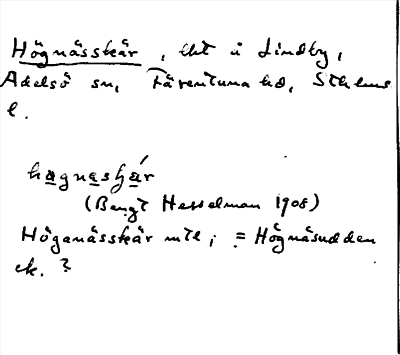 Högnässkär, lht i Lindby,
Adelsö sn, Färentuna hd, Sthlms
l.
hagnasjar
(Bengt Hesselman 1908)
Högenässkär mtl; = Högnäsudden
ek. ?